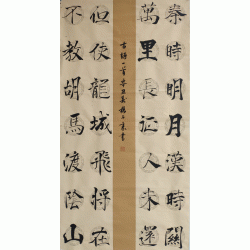 秦時明月漢時關
萬里長征人未還
但使龍城飛將在
不教胡馬渡陰山
古詩一首